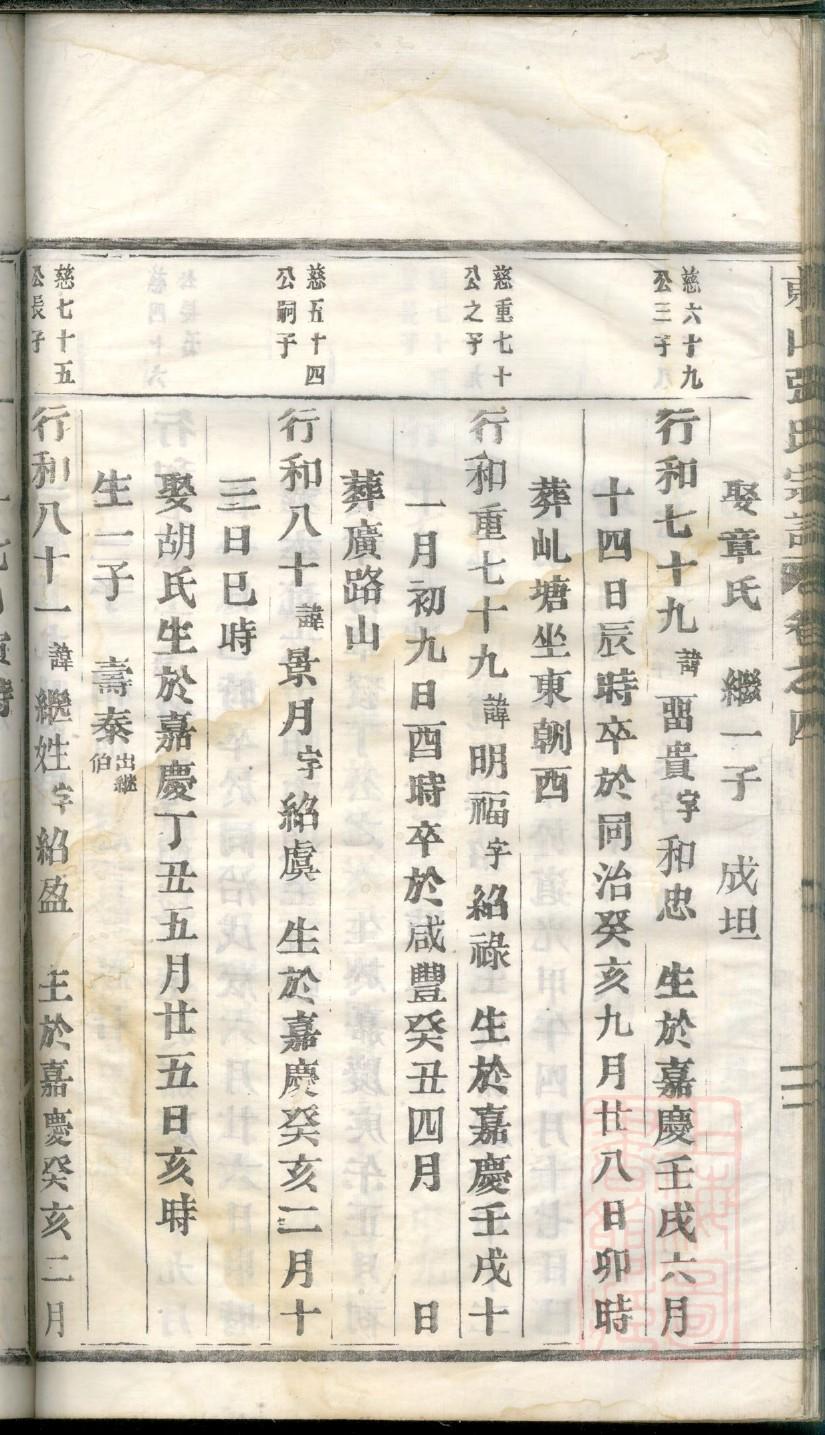 東山張氏宗譜 卷之四
娶章氏 繼一子 成坦
慈六十九公三子
行和七十九諱畱貴字和忠 生於嘉慶壬戌六月
十四日辰時卒於同治癸亥九月廿八日卯時
葬乢塘坐東朝西
慈重七十公之子
行和重七十九諱明福字紹祿 生於嘉慶壬戌十
一月初九日酉時卒於咸豐癸丑四月 日
葬廣路山
慈五十四公嗣子
行和八十諱景月字紹虞 生於嘉慶癸亥二月十
三日巳時
娶胡氏生於嘉慶丁丑五月廿五日亥時
生一子 壽泰出繼伯
慈七十五公長子
行和八十一諱繼姓字紹盈 生於嘉慶癸亥二月